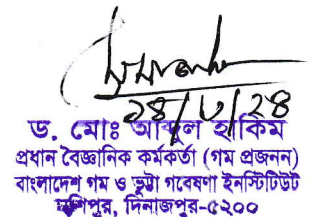 ২৪/৩/২৪
ড. মোঃ আব্দুল হাকিম
প্রধান বৈজ্ঞানিক কর্মকর্তা (গম প্রজনন)
বাংলাদেশ গম ও ভুট্টা গবেষণা ইনস্টিটিউট
নশিপুর, দিনাজপুর-৫২০০